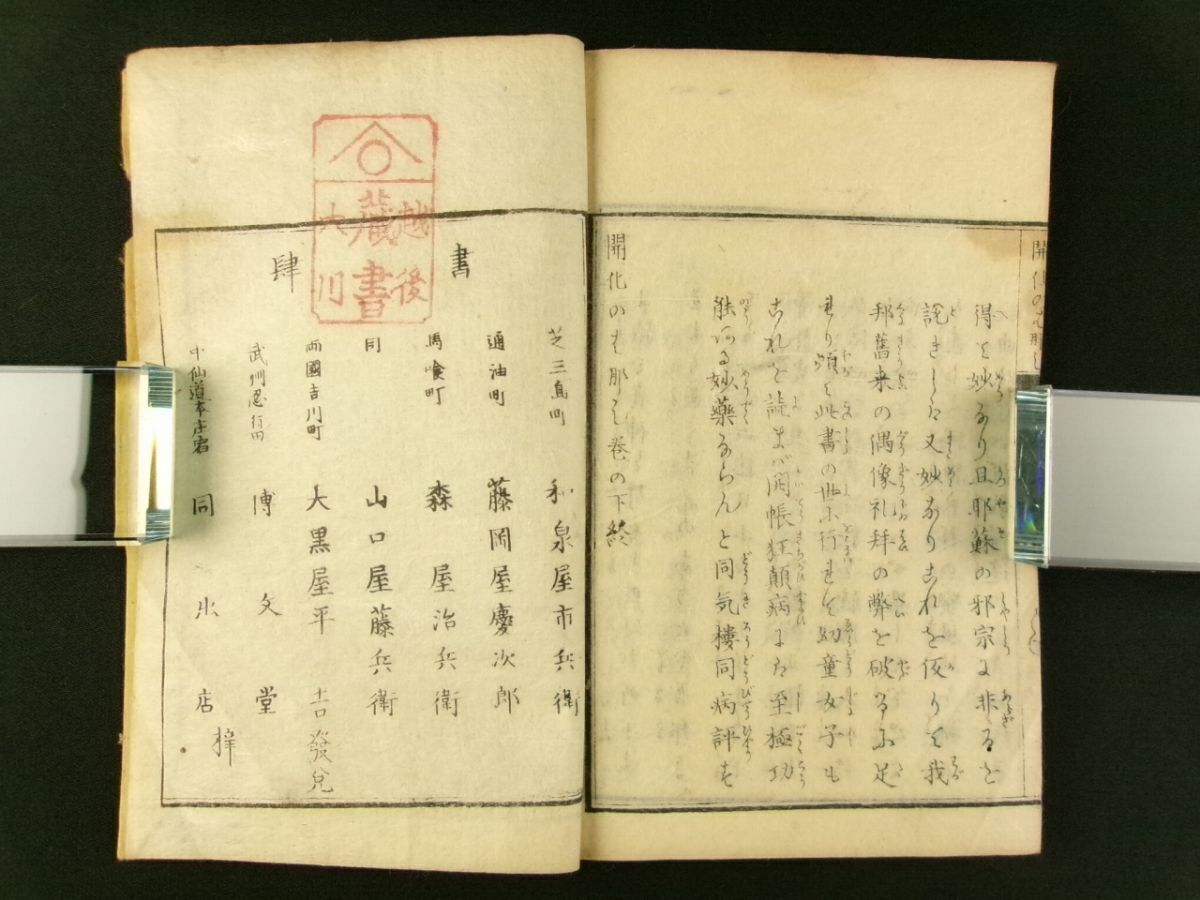 得て妙なり且耶蘇の邪宗に非るを
説きしは又妙なりこれを仮りて我
邦舊来の偶像礼拜の弊を破るに足
れり頗て此書の世に行れて幼童女子も
これを読まバ開帳狂顛病には至極功
能ある妙薬ならんと同気楼同病評す
開化のはなし巻の下終
書
肆
芝三島町 和泉屋市兵衛
通油町 藤岡屋慶次郎
馬喰町 森屋治兵衛
同 山口屋藤兵衛
両國吉川町 大黒屋平吉發兌
武州忍行田 博文堂
中仙道本庄宿 同出店
梓
越後
藏書
大川